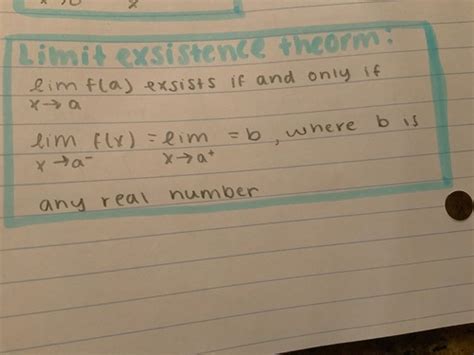 Limit exsistence theorm:
lim f(a) exsists if and only if
x→a
lim f(x) = lim = b, where b is
x→a⁻ x→a⁺
any real number